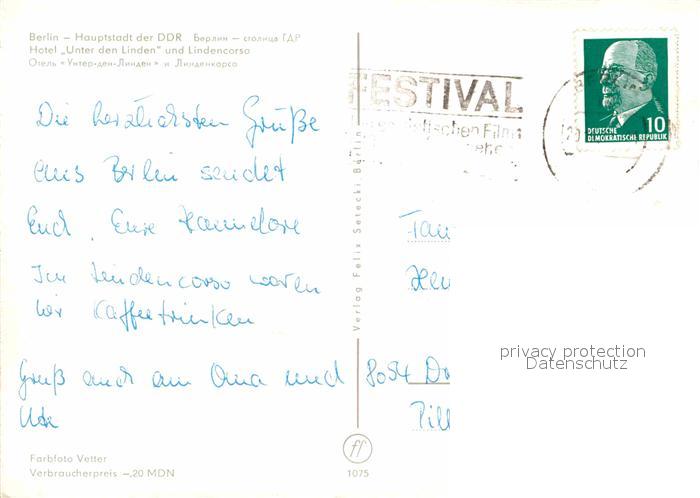 Berlin – Hauptstadt der DDR Берлин — столица ГДР
Hotel „Unter den Linden" und Lindencorso
Отель «Унтер-ден-Линден» и Линденкорсо
FESTIVAL
ischen Films
10
DEUTSCHE
DEMOKRATISCHE REPUBLIK
Die herzlichsten Grüße
aus Berlin sendet
Euch, Eure Hannelore
Im Lindencorso waren
wir Kaffeetrinken
Gruß auch an Oma und
Ute
Verlag Felix Setecki Berlin
8054 Dr
Pill
privacy protection
Datenschutz
Farbfoto Vetter
Verbraucherpreis –,20 MDN
ff
1075